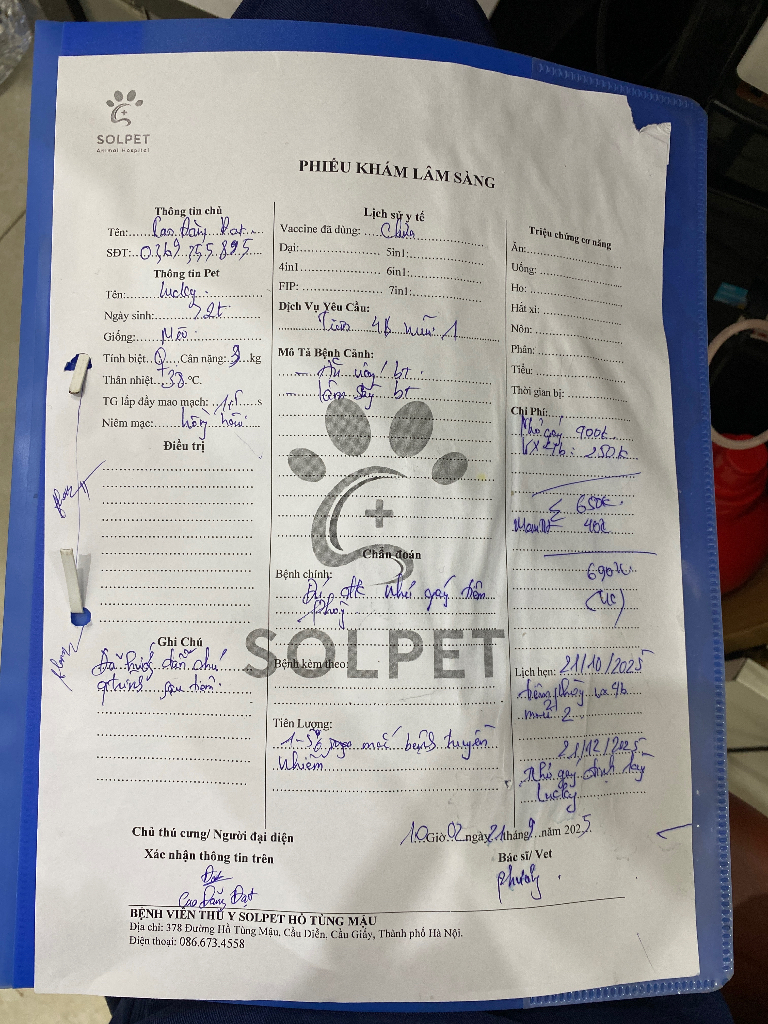 SOLPET
Animal Hospital
PHIẾU KHÁM LÂM SÀNG
Thông tin chủ
Tên: Cao Đăng Đạt
SĐT: 0369.755.895
Thông tin Pet
Tên: Lucky
Ngày sinh: 2t
Giống: Mèo
Tính biệt Cân nặng: 3 kg
Thân nhiệt 38 °C.
TG lấp đầy mao mạch: s
Niêm mạc: hồng
Điều trị
Ghi Chú
Đã hướng dẫn chủ
sau tiêm
Lịch sử y tế
Vaccine đã dùng: Chưa
Dại: 5in1:
4in1 6in1:
FIP: 7in1:
Dịch Vụ Yêu Cầu:
Tiêm 4b mũi 1
Mô Tả Bệnh Cảnh:
Ăn uống bt
bt
Chẩn đoán
Bệnh chính:
nhỏ gáy tiêm
phòng
SOLPET
Bệnh kèm theo:
Tiên Lượng:
mắc bệnh truyền
nhiễm
Triệu chứng cơ năng
Ăn:
Uống:
Ho:
Hắt xì:
Nôn:
Phân:
Tiểu:
Thời gian bị:
Chi Phí:
Nhỏ gáy 400k
VX 4b: 250k
650k
40k
690k
Lịch hẹn: 21/10/2025
tiêm phòng vx 4b
mũi 2
21/12/2025
Nhỏ gáy định kỳ
Lucky
10 Giờ 02 ngày 21 tháng 9 năm 2025
Chủ thú cưng/ Người đại diện
Xác nhận thông tin trên
Đạt
Cao Đăng Đạt
Bác sĩ/ Vet
Phương
BỆNH VIỆN THÚ Y SOLPET HỒ TÙNG MẬU
Địa chỉ: 378 Đường Hồ Tùng Mậu, Cầu Diễn, Cầu Giấy, Thành phố Hà Nội.
Điện thoại: 086.673.4558